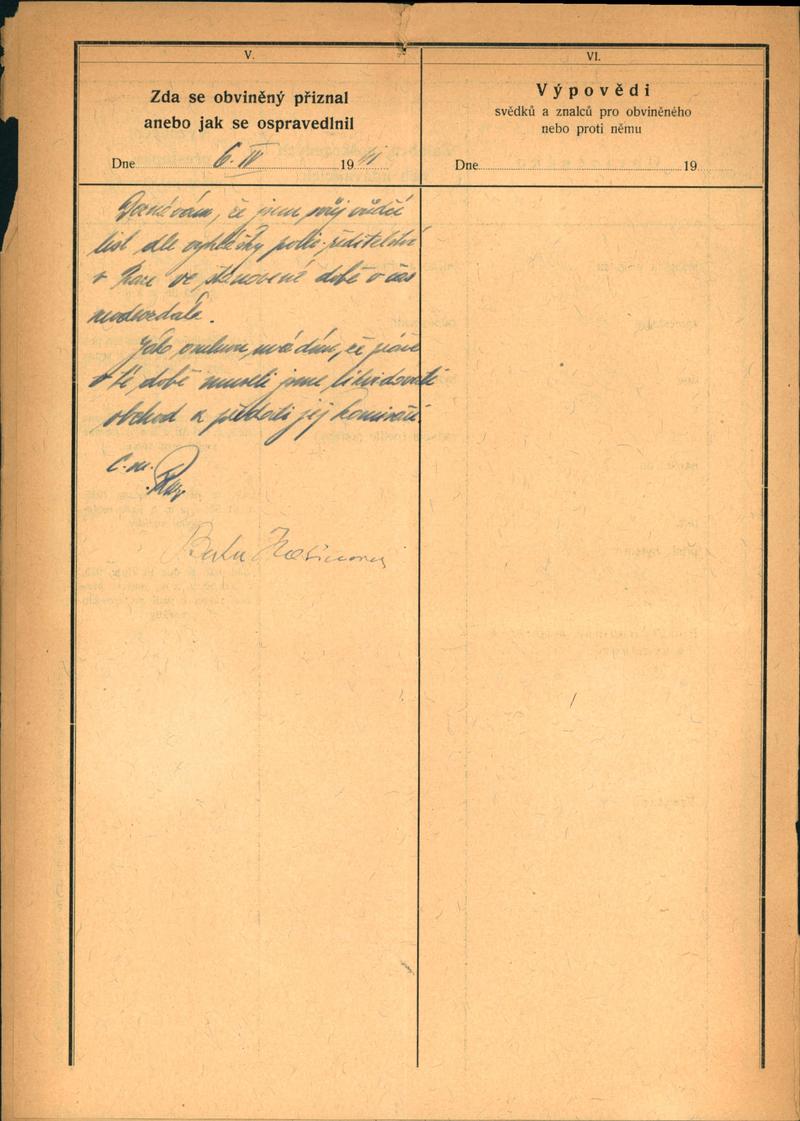 V.
Zda se obviněný přiznal
anebo jak se ospravedlnil
Dne 6. IV 19 41
Doznávám, že jsem svůj vůdčí
list dle vyhlášky polic. ředitelství
v Praze ve stanovené době v čas
neodevzdala.
Jako omluvu uvádím, že práve
v té době museli jsme likvidovati
obchod a předati jej komisaři.
VI.
Výpovědi
svědků a znalců pro obviněného
nebo proti němu
Dne 19